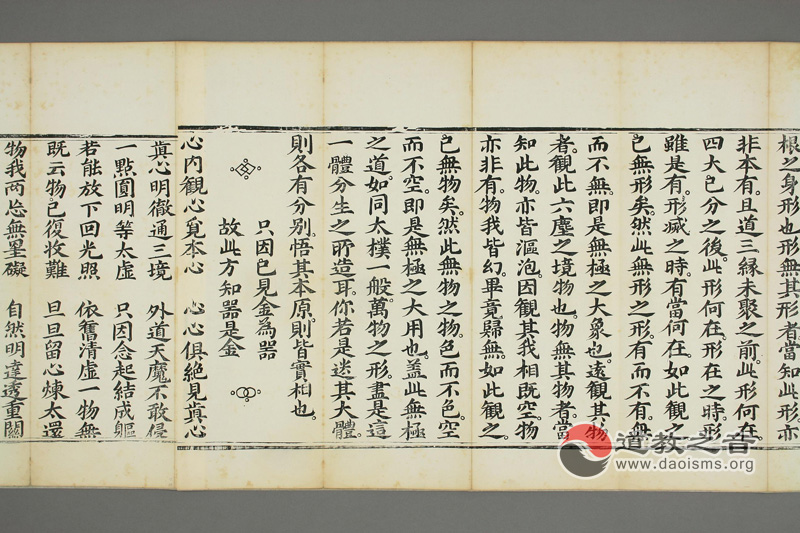 根之身形也形無其形者當知此形亦
非本有且道三緣未聚之前此形何在
四大已分之後此形何在形在之時形
雖是有形滅之時有當何在如此觀之
已無形矣然此無形之形有而不有無
而不無即是無極之大象也遠觀其物
者觀此六塵之境物也物無其物者當
知此物亦皆漚泡因觀其我相既空物
亦非有物我皆幻畢竟歸無如此觀之
已無物矣然此無物之物色而不色空
而不空即是無極之大用也蓋此無極
之道如同太樸一般萬物之形盡是這
一體分生之所造耳你若是迷其大體
則各有分別悟其本原則皆實相也
只因已見金為器
故此方知器是金
心內觀心覓本心 心心俱絕見真心
真心明徹通三境 外道天魔不敢侵
一點圓明等太虛 只因念起結成軀
若能放下回光照 依舊清虛一物無
既云物已復收難 旦旦留心煉太還
物我兩忘無罣礙 自然明達透重關
道教之音
www.daoisms.org